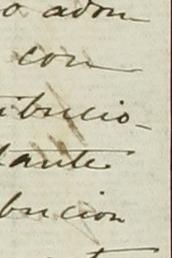 o adon
con
ibucio-
tante
bucion